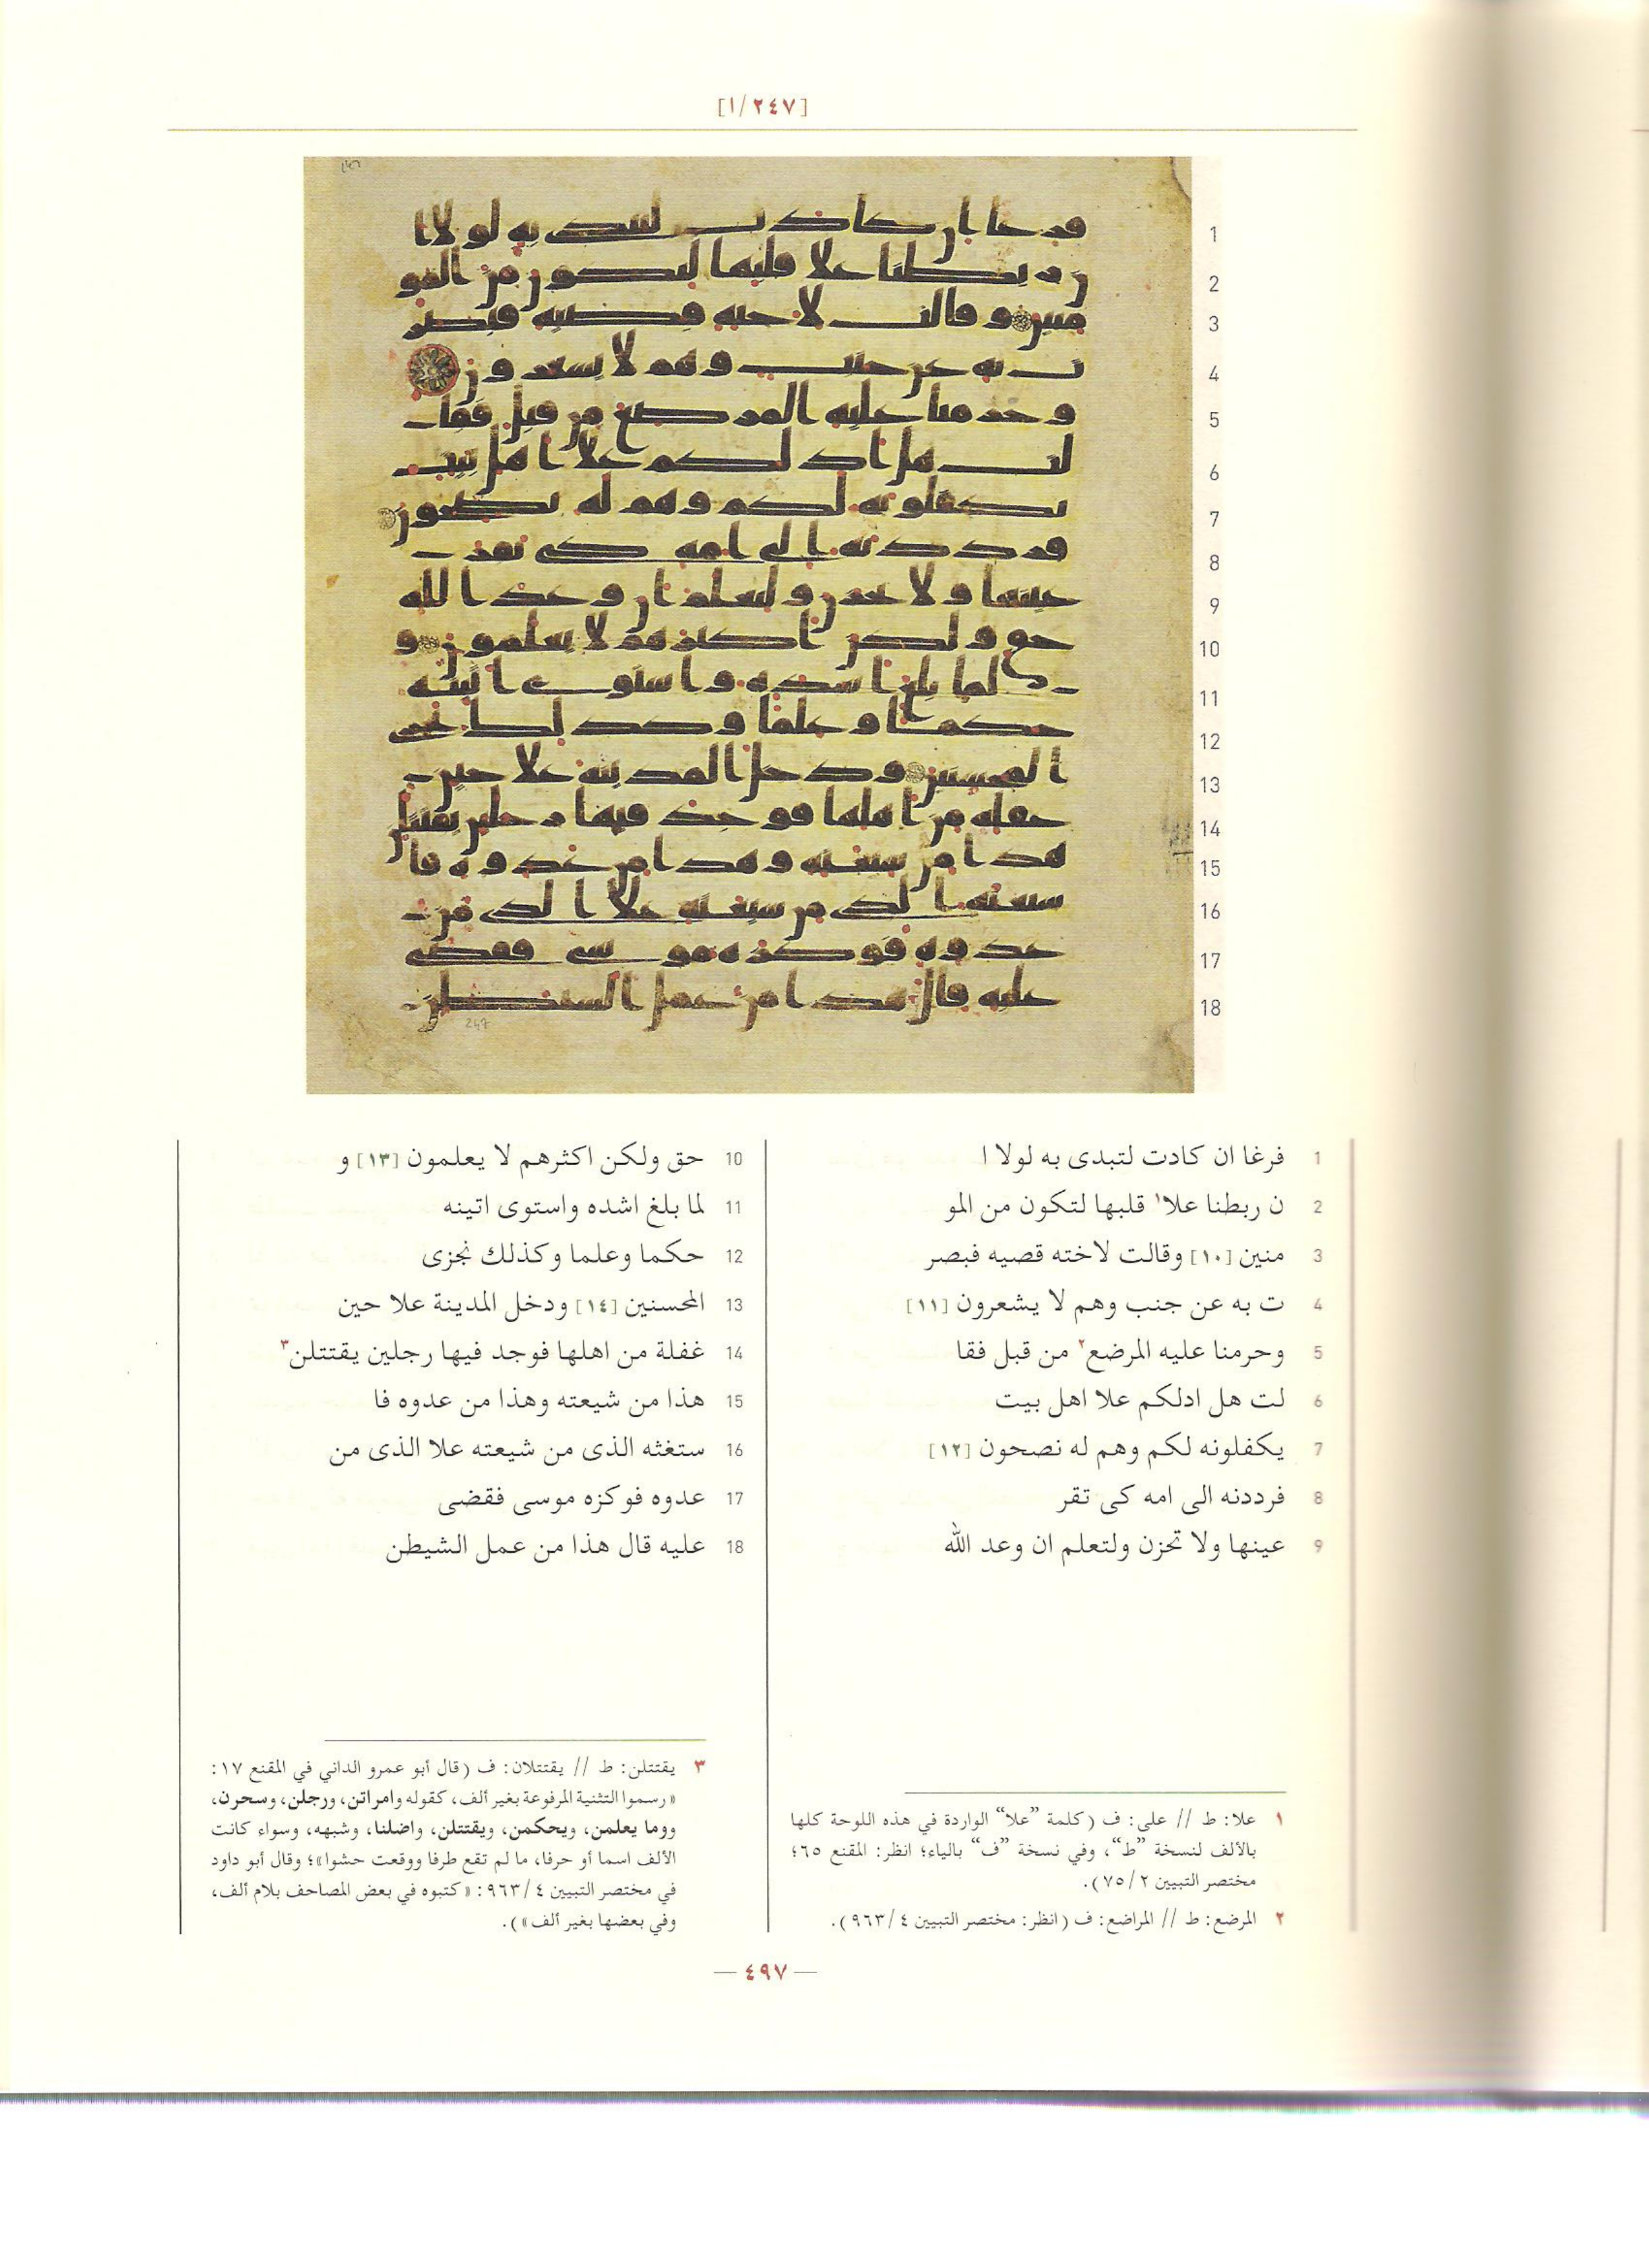 [١/٢٤٧]
1 فرغا ان كادت لتبدى به لولا ا
2 ن ربطنا علا١ قلبها لتكون من المو
3 منين [١٠] وقالت لاخته قصيه فبصر
4 ت به عن جنب وهم لا يشعرون [١١]
5 وحرمنا عليه المرضع٢ من قبل فقا
6 لت هل ادلكم علا اهل بيت
7 يكفلونه لكم وهم له نصحون [١٢]
8 فرددنه الى امه كى تقر
9 عينها ولا تحزن ولتعلم ان وعد الله
10 حق ولكن اكثرهم لا يعلمون [١٣] و
11 لما بلغ اشده واستوى اتينه
12 حكما وعلما وكذلك نجزى
13 المحسنين [١٤] ودخل المدينة علا حين
14 غفلة من اهلها فوجد فيها رجلين يقتتلن٣
15 هذا من شيعته وهذا من عدوه فا
16 ستغثه الذى من شيعته علا الذى من
17 عدوه فوكزه موسى فقضى
18 عليه قال هذا من عمل الشيطن
١ علا: ط // على: ف (كلمة ”علا“ الواردة في هذه اللوحة كلها
بالألف لنسخة ”ط“، وفي نسخة ”ف“ بالياء؛ انظر: المقنع ٦٥؛
مختصر التبيين ٧٥/٢).
٢ المرضع: ط // المراضع: ف (انظر: مختصر التبيين ٩٦٣/٤).
٣ يقتتلن: ط // يقتتلان: ف (قال أبو عمرو الداني في المقنع ١٧:
«رسموا التثنية المرفوعة بغير ألف، كقوله وامراتن، ورجلن، وسحرن،
ووما يعلمن، ويحكمن، ويقتتلن، واضلنا، وشبهه، وسواء كانت
الألف اسما أو حرفا، ما لم تقع طرفا ووقعت حشوا»؛ وقال أبو داود
في مختصر التبيين ٩٦٣/٤: «كتبوه في بعض المصاحف بلام ألف،
وفي بعضها بغير ألف»).
— ٤٩٧ —